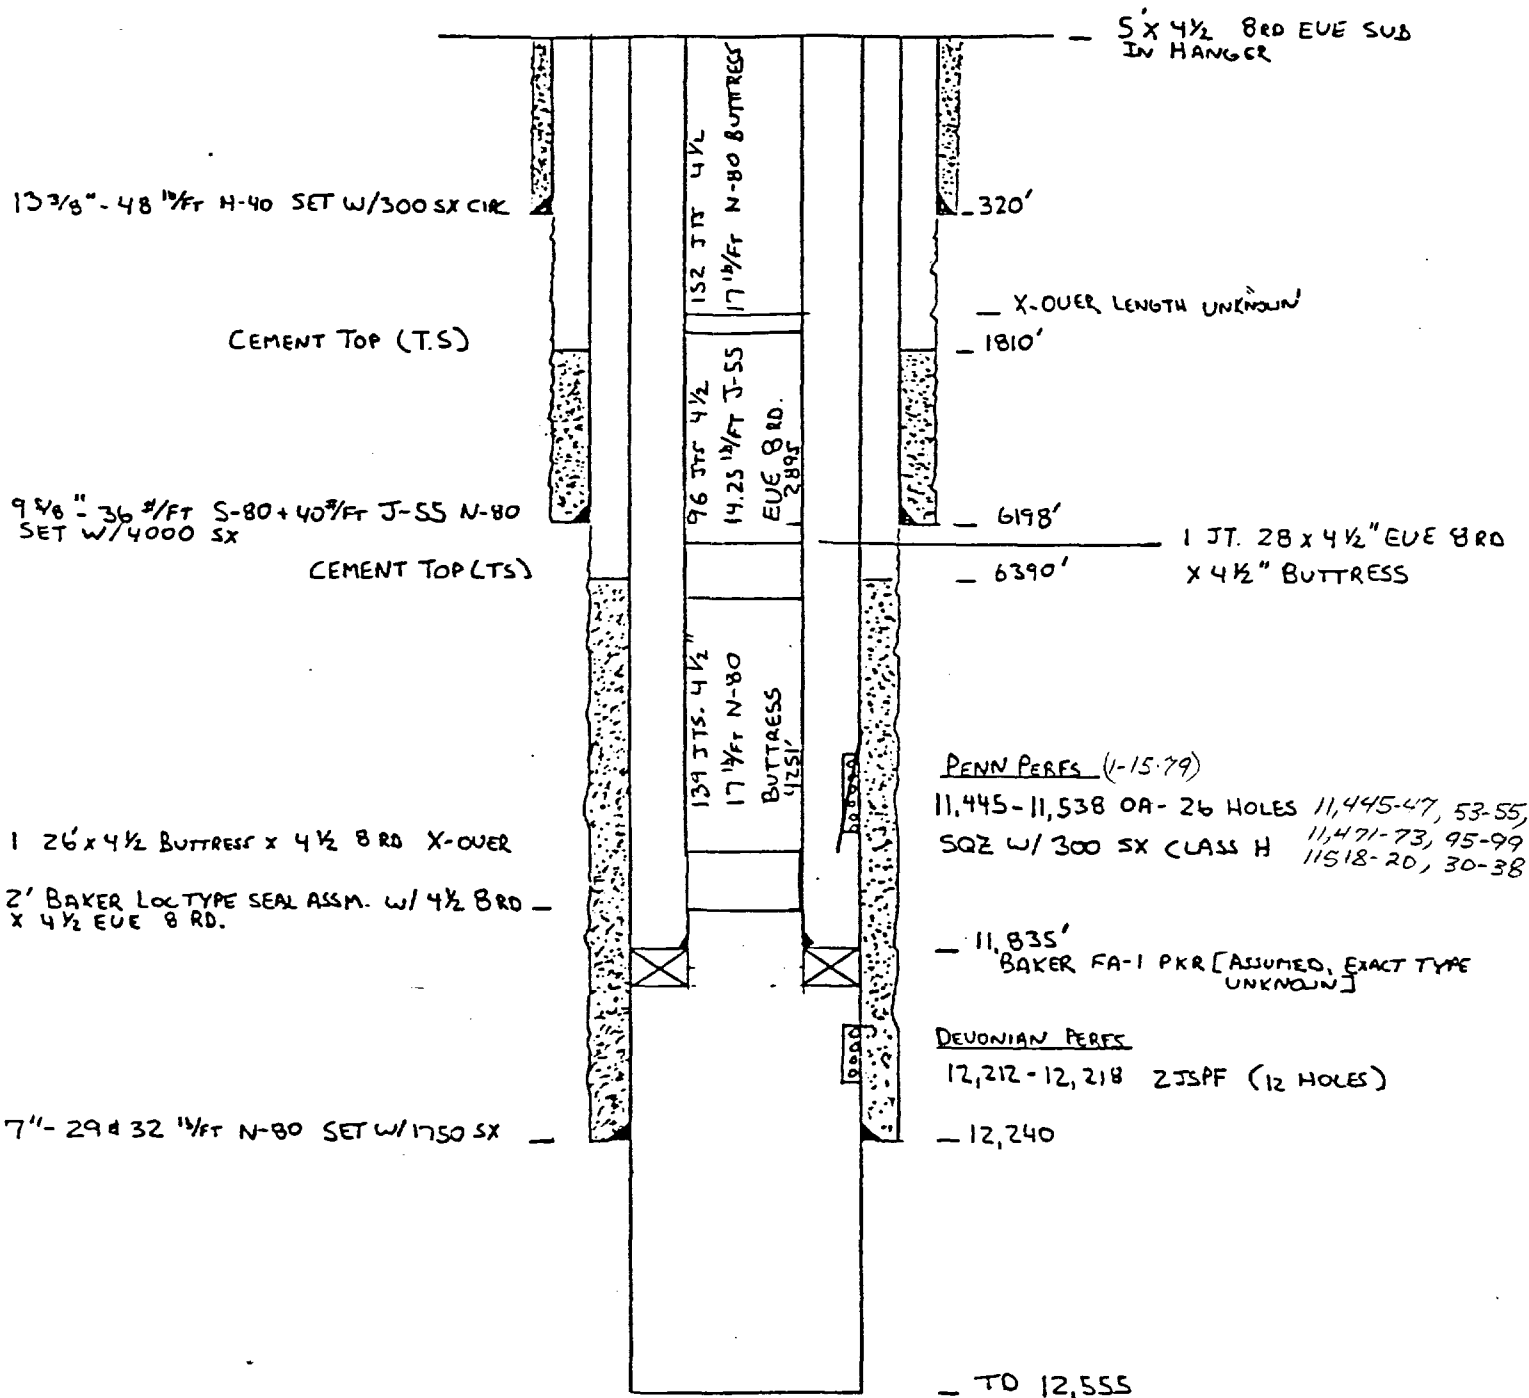 5' X 4½ 8RD EUE SUB
IN HANGER
152 JTS 4½
17 lb/FT N-80 BUTTRESS
13 3/8" - 48 lb/FT H-40 SET W/300 SX CIRC
320'
X-OVER LENGTH UNKNOWN
CEMENT TOP (T.S)
1810'
96 JTS 4½
14.25 lb/FT J-55
EUE 8 RD.
2895
9 5/8" - 36 #/FT S-80 + 40#/FT J-55 N-80
SET W/4000 SX
6198'
1 JT. 28 X 4½" EUE 8 RD
X 4½" BUTTRESS
CEMENT TOP (TS)
6390'
139 JTS. 4½"
17 lb/FT N-80
BUTTRESS
4251'
PENN PERFS (1-15-79)
11,445-11,538 OA- 26 HOLES 11,445-47, 53-55,
SQZ W/ 300 SX CLASS H 11,471-73, 95-99
11518-20, 30-38
1 26' X 4½ BUTTRESS X 4½ 8 RD X-OVER
2' BAKER LOC TYPE SEAL ASSM. W/ 4½ 8 RD
X 4½ EUE 8 RD.
11,835'
BAKER FA-1 PKR [ASSUMED, EXACT TYPE
UNKNOWN]
DEVONIAN PERFS
12,212-12,218 2JSPF (12 HOLES)
7" - 29 & 32 lb/FT N-80 SET W/1750 SX
12,240
TD 12,555